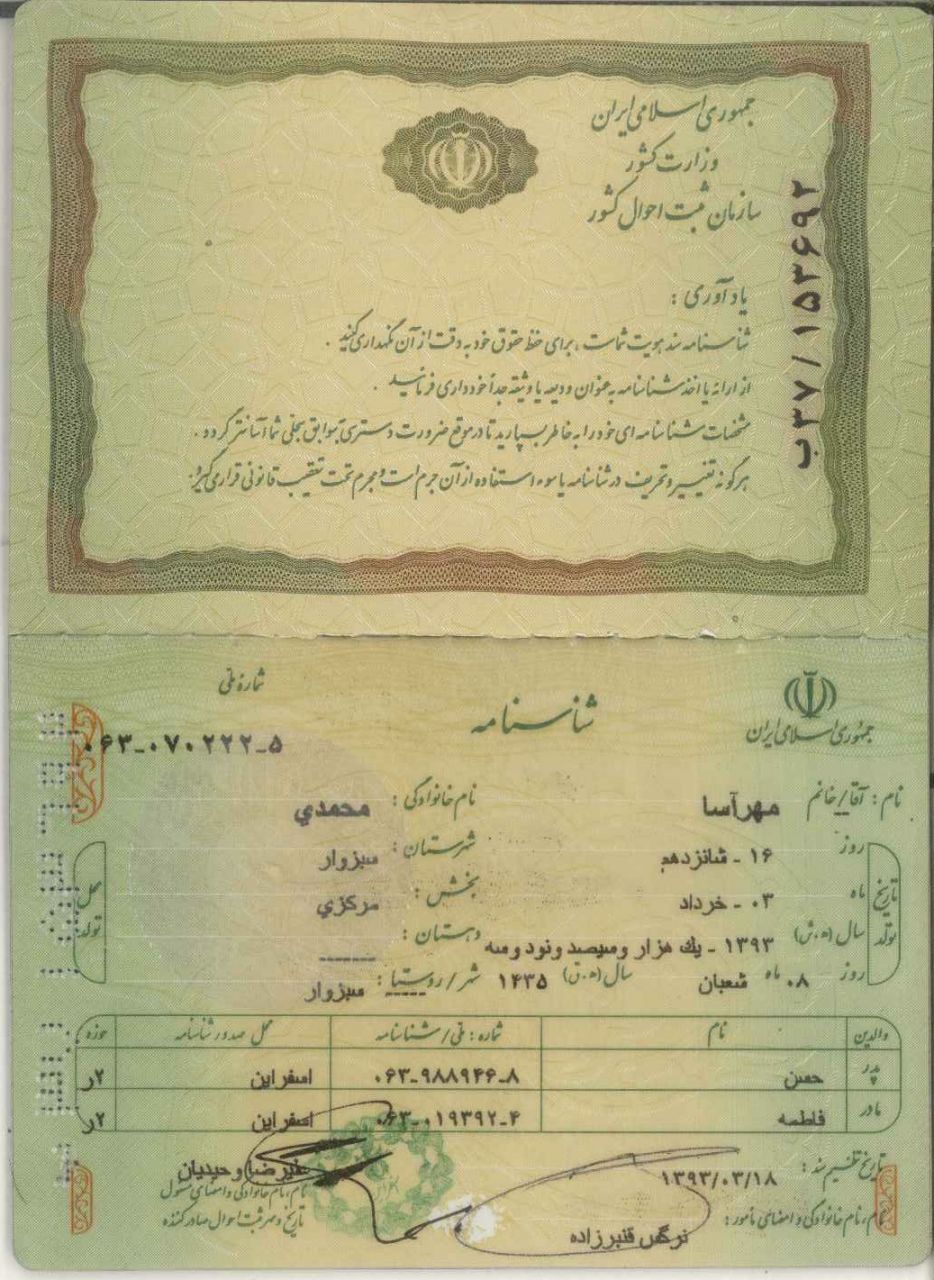 جمهوری اسلامی ایران
وزارت کشور
سازمان ثبت احوال کشور
ب۳۷/۱۵۳۶۹۲
یادآوری :
شناسنامه سند هویت شماست ، برای حفظ حقوق خود به دقت از آن نگهداری کنید .
از ارائه یا اخذ شناسنامه به عنوان ودیعه یا وثیقه جداً خودداری فرمائید .
مشخصات شناسنامه ای خود را به خاطر بسپارید تا در موقع ضرورت دسترسی به سوابق سجلی شما آسانتر گردد .
هرگونه تغییر و تحریف در شناسنامه یا سوء استفاده از آن جرم است و مجرم تحت تعقیب قانونی قرار می گیرد.
جمهوری اسلامی ایران
شناسنامه
شماره ملی
۰۶۳-۰۷۰۲۲۲-۵
نام : آقا/خانم مهرآسا نام خانوادگی : محمدي
تاریخ تولد
روز ۱۶ - شانزدهم
ماه ۰۳ - خرداد
سال (ه.ش) ۱۳۹۳ - يك هزار وسيصد ونود وسه
روز ۰۸ ماه شعبان سال (ه.ق) ۱۴۳۵
محل تولد
شهرستان : سبزوار
بخش : مرکزي
دهستان : ------
شهر/روستا : سبزوار
والدین نام شماره : ملی/شناسنامه محل صدور شناسنامه حوزه
پدر حسن ۰۶۳-۹۸۸۹۴۶-۸ اسفراین ۲ر
مادر فاطمه ۰۶۳-۰۱۹۳۹۲-۴ اسفراین ۲ر
تاریخ تنظیم سند : ۱۳۹۳/۰۳/۱۸
نام، نام خانوادگی و امضای مامور :
نرگس قنبرزاده
علیرضا وحیدیان
نام، نام خانوادگی و امضای مسئول
تاریخ و مهر ثبت احوال صادرکننده